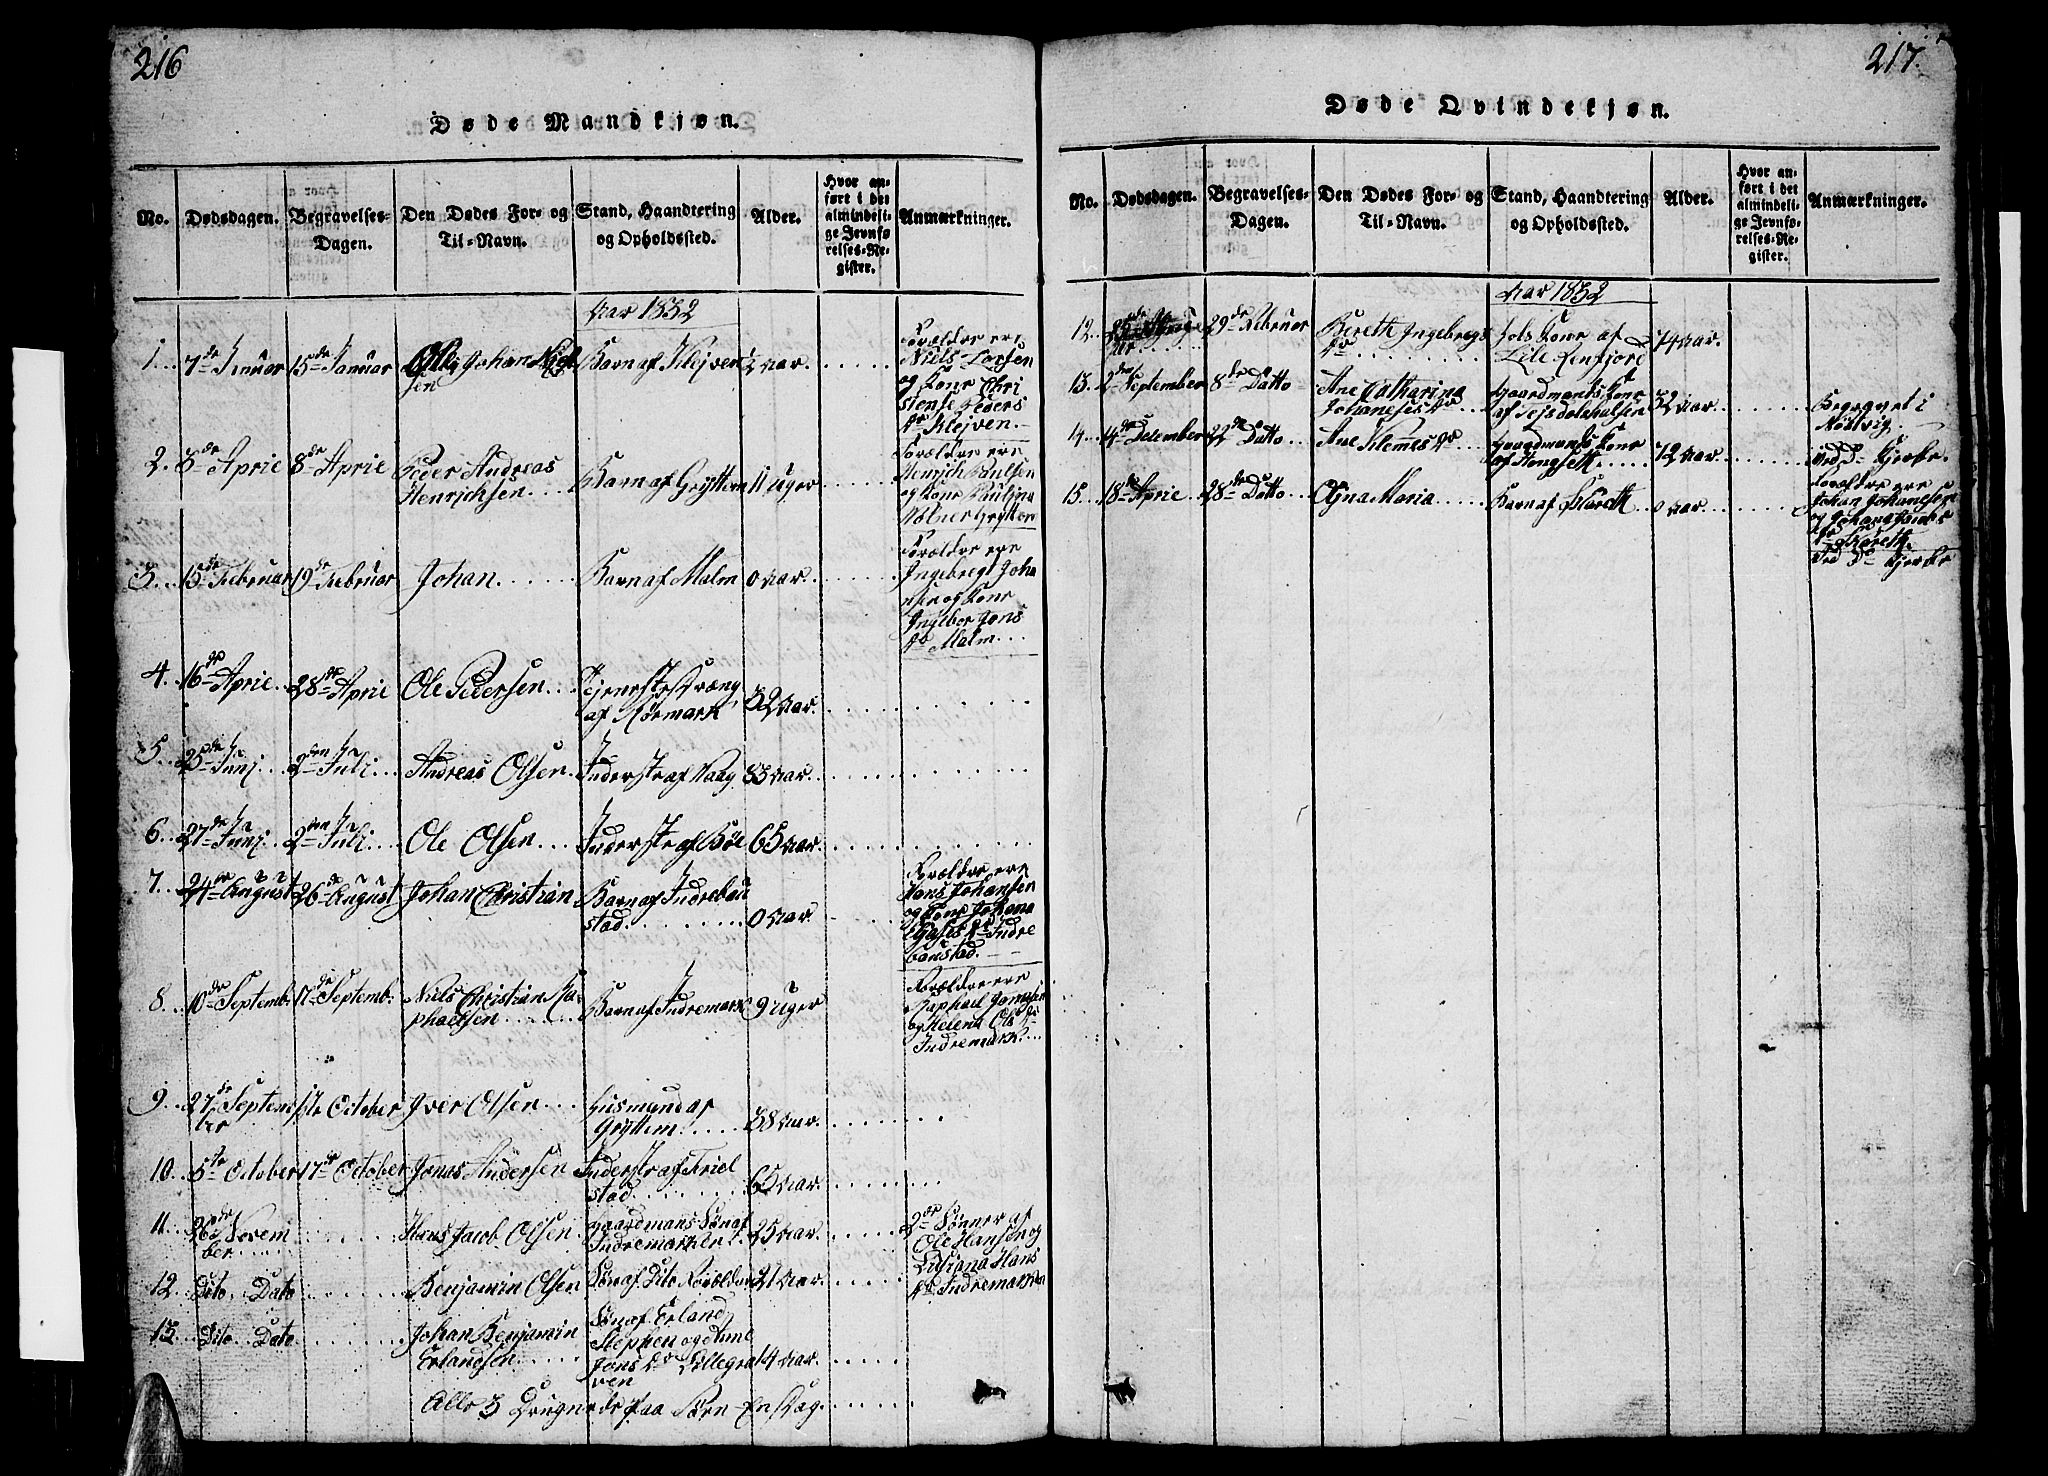 216
Døde Mandkjøn.
No.
Dødsdagen.
Begravelses-
Dagen.
Den Dødes For- og
Til-Navn.
Stand, Haandtering
og Opholdssted.
Alder.
Hvor an-
ført i det
almindeli-
ge Jevnfø-
relses-Re-
gister.
Anmærkninger.
Aar 1832
1. 7de Januar 15de Januar Ole Johan Niel
sen
Barn af Klejven ½ Aar
Forældre ere
Niels Larsen
og Kone Chri
stense Peders
dr Klejven.
2. 3de Aprie 8de Aprie Peder Andreas
Henrichsen
Barn af Gryttem 11 uger
Forældre ere
Henrich Paulsen
og Kone Paulina
3. 15de Februar 19de Februar Johan Barn af Malm 0 Aar
Forældre ere
Ingebregt Joha
og Kone
Ingeber Jons
dr Malm
4. 16de Aprie 28de Aprie Ole Pedersen
Tjenestedræng
af Kørmark 32 Aar.
5. 25de Junj 2den Juli Andreas Olsen Inderst af Vaag 83 Aar
6. 27de Junj 2den Juli Ole Olsen Inderst af Bøe 65 Aar.
7. 24de August 26de August Johan Christian Barn af Indrebau
stad 0 Aar.
Forældre ere
Hans Johansen
og Kone Johana
dr Indre
baustad.
8. 10de Septemb. 17de Septemb. Niels Christian Ra
phaelsen
Barn af Indremark 9 uger
Forældre ere
Raphael Jonsen
og Helena Ols dr
Indremark
9. 27de Septem
ber
1ste October Iver Olsen
Husmand af
Gryttem 38 Aar.
10. 5te October 17de October Jonas Andersen Inderst af Fred
stad 65 Aar.
11. 26de Novem
ber
Hans Jacob Olsen
Gaardmans Søn af
Indremarken 25 Aar
2de Sønner af
Ole Hansen og
Hans
dr Indremarken
12. Dito Dato Benjamin Olsen Søn af Dito Forældre 21 Aar
13. Dito Dato Johan Benjamin
Erlandsen
Søn af Erland
Stephen og
Jons dr Lillegra
ven
14 Aar.
Alle 3 Drugnede paa Søen En Dag.
217.
Døde Qvindekjøn.
No.
Dødsdagen.
Begravelses-
Dagen.
Den Dødes For- og
Til-Navn.
Stand, Haandtering
og Opholdssted.
Alder.
Hvor an-
ført i det
almindeli-
ge Jevnfø-
relses-Re-
gister.
Anmærkninger.
Aar 1832
12. 29de Februar Bereth Ingebregts
dr
Kone af
Lile 74 Aar.
13. 2den September 8de Datto Ane Catharina
Johaneses dr
Gaardmands Kone
af 32 Aar
Begravet i
14. 14de Desember 22de Datto Ane Klemes dr
Gaardmands Kone
af Hongseth 72 Aar
Ved Do Kjerke.
15. 18de Aprie 28de Datto Olina Maria Barn af Skareth 0 Aar
Forældre ere
Johan Johanesen
og Johana Jacobs
dr Skareth
Ved Do Kjerke